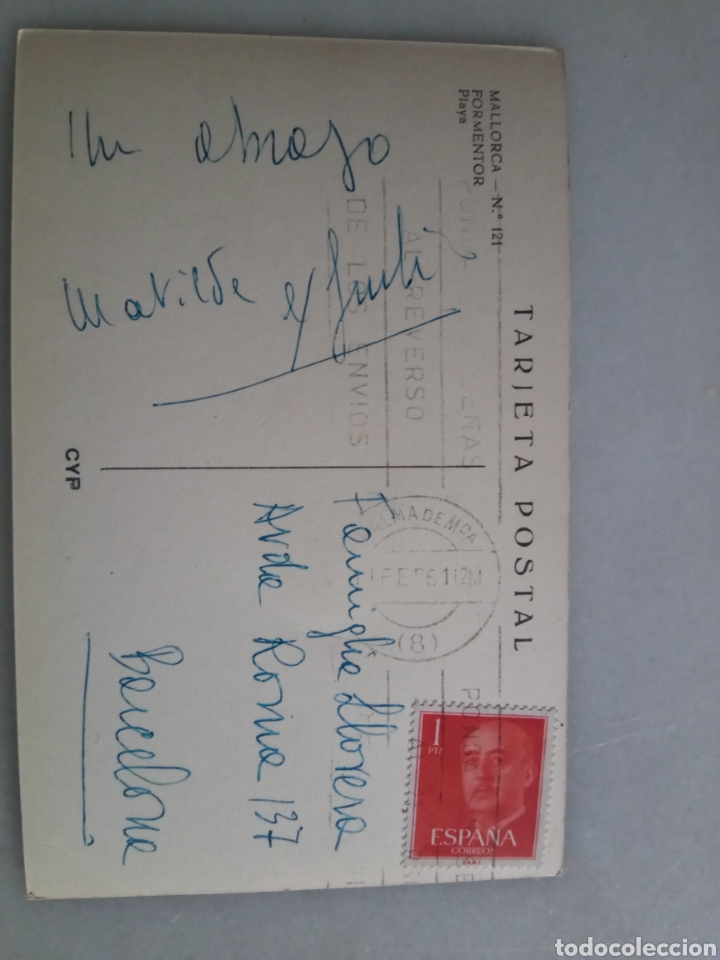 TARJETA POSTAL
MALLORCA — N.º 121
FORMENTOR
Playa
Un abrazo
Matilde y
CYP
Famiglia Llorera
Avda Roma 137
Barcelona
AL REVERSO
DE LOS ENVIOS
PALMA DE MCA
FEB 61 12M
(8)
PONGA
SEÑAS
PONGA
1
PTA
ESPAÑA
CORREOS
todocoleccion